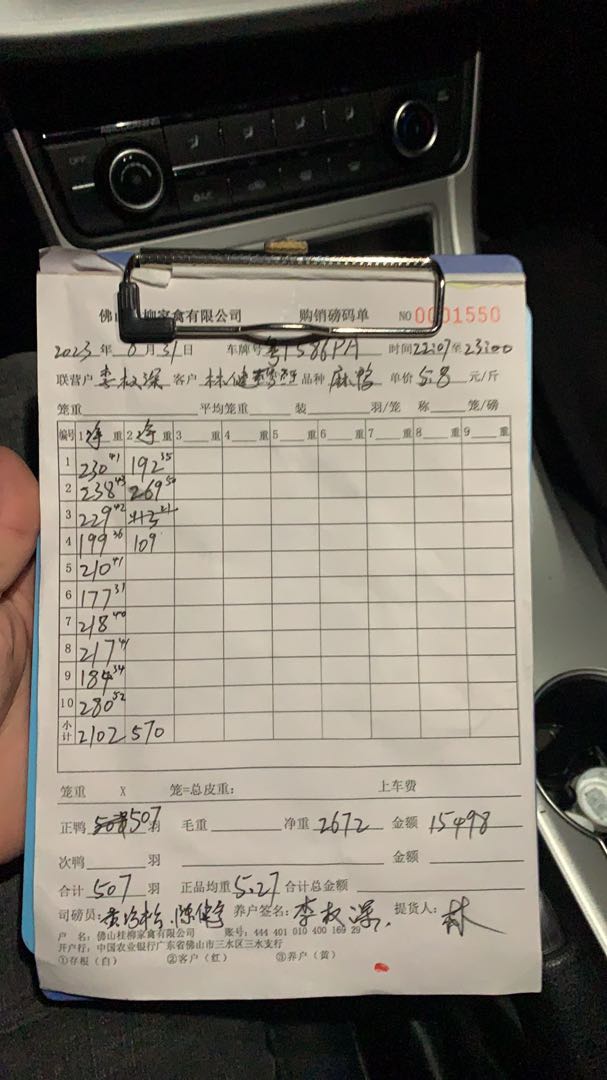 佛山桂柳家禽有限公司 购销磅码单 NO 0001550
2023年8月31日 车牌号 粤T586PA 时间22:07至23:00
联营户 李权深 客户 林健 品种 麻鸭 单价 5.8 元/斤
笼重 平均笼重 装 羽/笼 称 笼/磅
编号 1 净 重 2 净 重 3 重 4 重 5 重 6 重 7 重 8 重 9 重
1 230 41 192 35
2 238 43 269 50
3 229 42
4 199 36 109
5 210 41
6 177 31
7 218 40
8 217 41
9 184 34
10 280 52
小计 2102 570
笼重 X 笼=总皮重: 上车费
正鸭 507 羽 毛重 净重 2672 金额 15498
次鸭 羽 金额
合计 507 羽 正品均重 5.27 合计总金额
司磅员: 养户签名: 李权深 提货人: 林
户 名: 佛山桂柳家禽有限公司 账号: 444 401 010 400 169 29
开户行: 中国农业银行广东省佛山市三水区三水支行
①存根(白) ②客户(红) ③养户(黄)